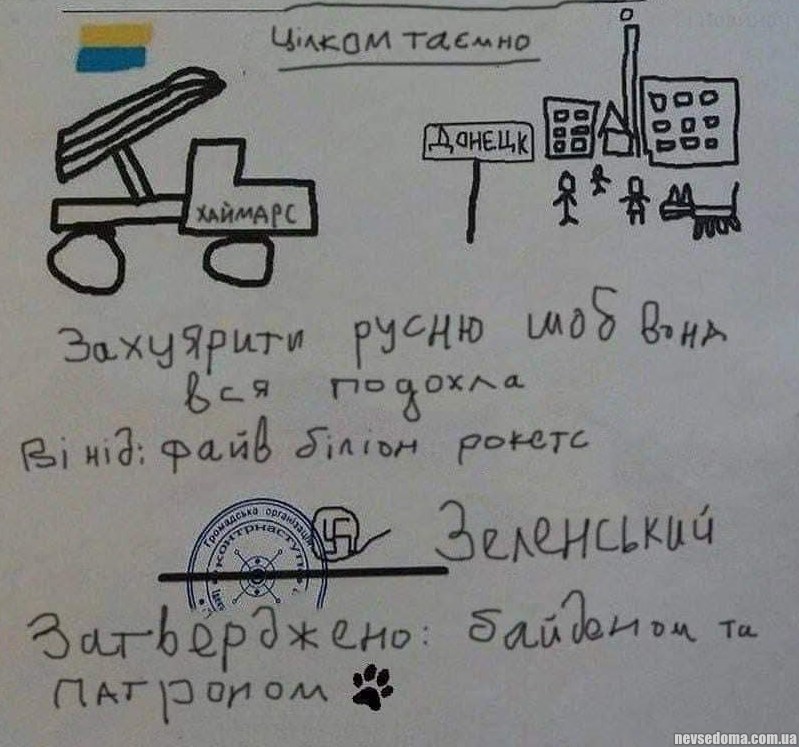 Цілком таємно
ДОНЕЦК
ХАЙМАРС
Захуярити русню шоб вона
вся подохла
Ві нід: файв біліон рокетс
Громадська організація
контрнаступ
Зеленський
Затверджено: байденом та
патроном
nevsedoma.com.ua